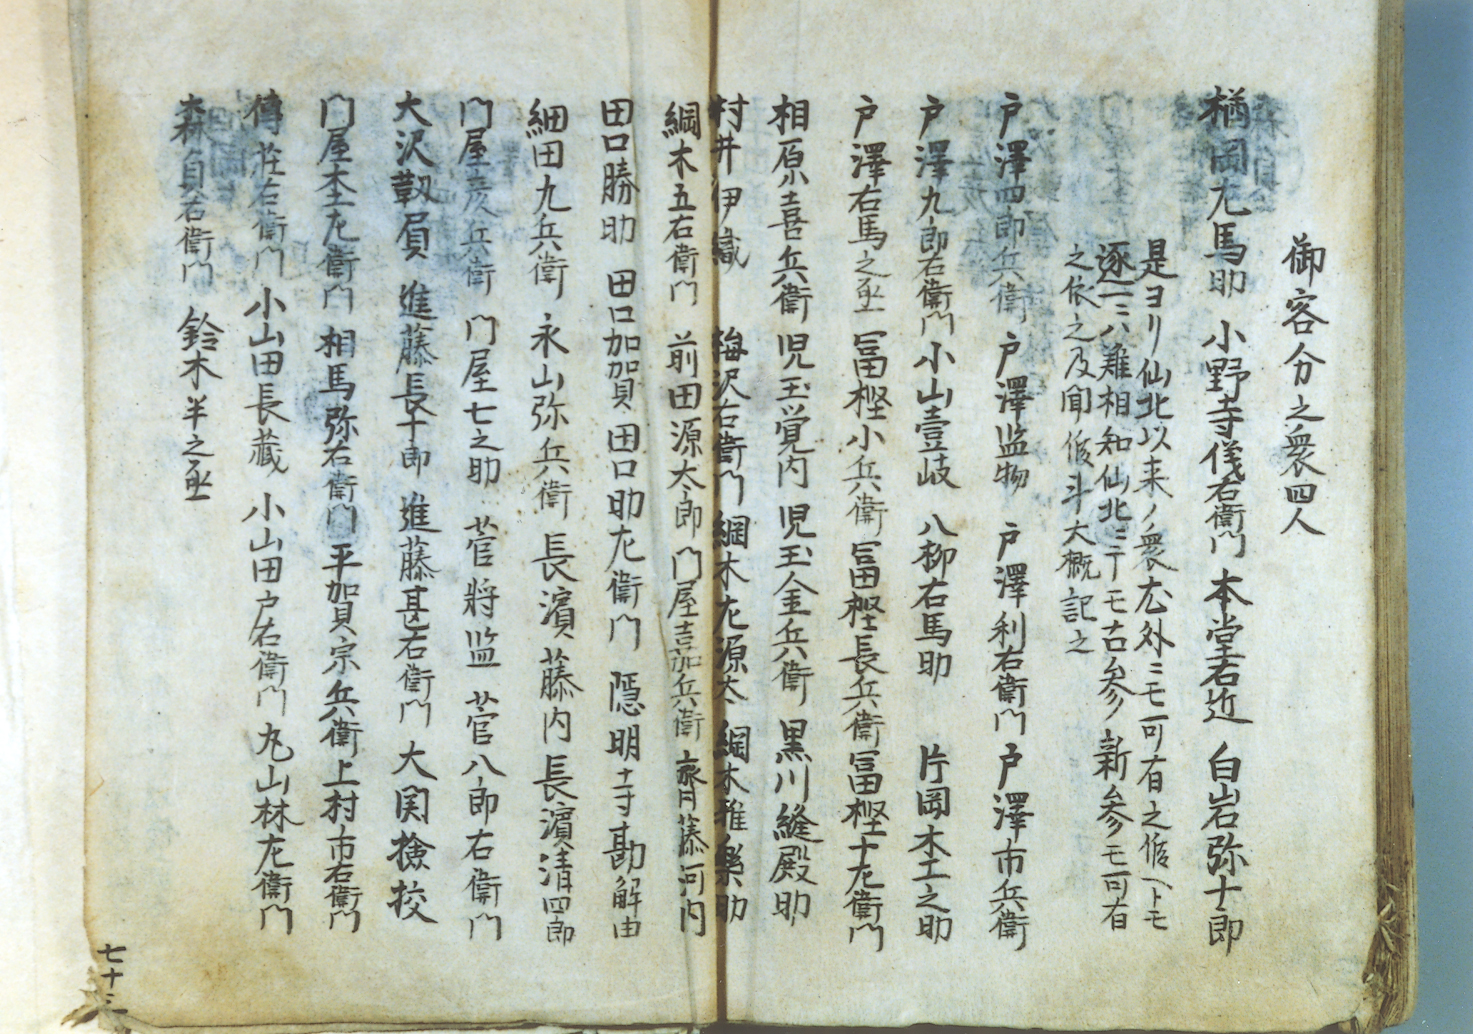 御容分之衆四人
楢岡左馬助 小野寺俊右衛門 本堂右近 白岩弥十郎
是ヨリ仙北以来ノ衆左外ニモ可有之仮ヘトモ
逐一ニハ難相知仙北ニテモ古参新参モ可有
之依之及聞仮斗大概記之
戸澤四郎兵衛 戸澤监物 戸澤利右衛門 戸澤市兵衛
戸澤九郎右衛門 小山壹岐 八柳右馬助 片岡木工之助
戸澤右馬之丞 冨樫小兵衛 冨樫長兵衛 冨樫十左衛門
相原喜兵衛 児玉覚内 児玉金兵衛 黒川縫殿助
村井伊織 梅沢右衛門 綱木左源太 綱木雅樂助
綱木五右衛門 前田源太郎 門屋喜兵衛 齊藤河内
田口勝助 田口加賀 田口助左衛門 隠明寺勘解由
細田九兵衛 永山弥兵衛 長濱藤内 長濱清四郎
門屋彦兵衛 門屋七之助 菅将监 菅八郎右衛門
大沢靱屓 進藤長十郎 進藤甚右衛門 大関撿挍
門屋杢左衛門 相馬弥右衛門 平賀宗兵衛 上村市右衛門
傳荘右衛門 小山田長藏 小山田戸右衛門 丸山林左衛門
森自右衛門 鈴木半之丞
七十三